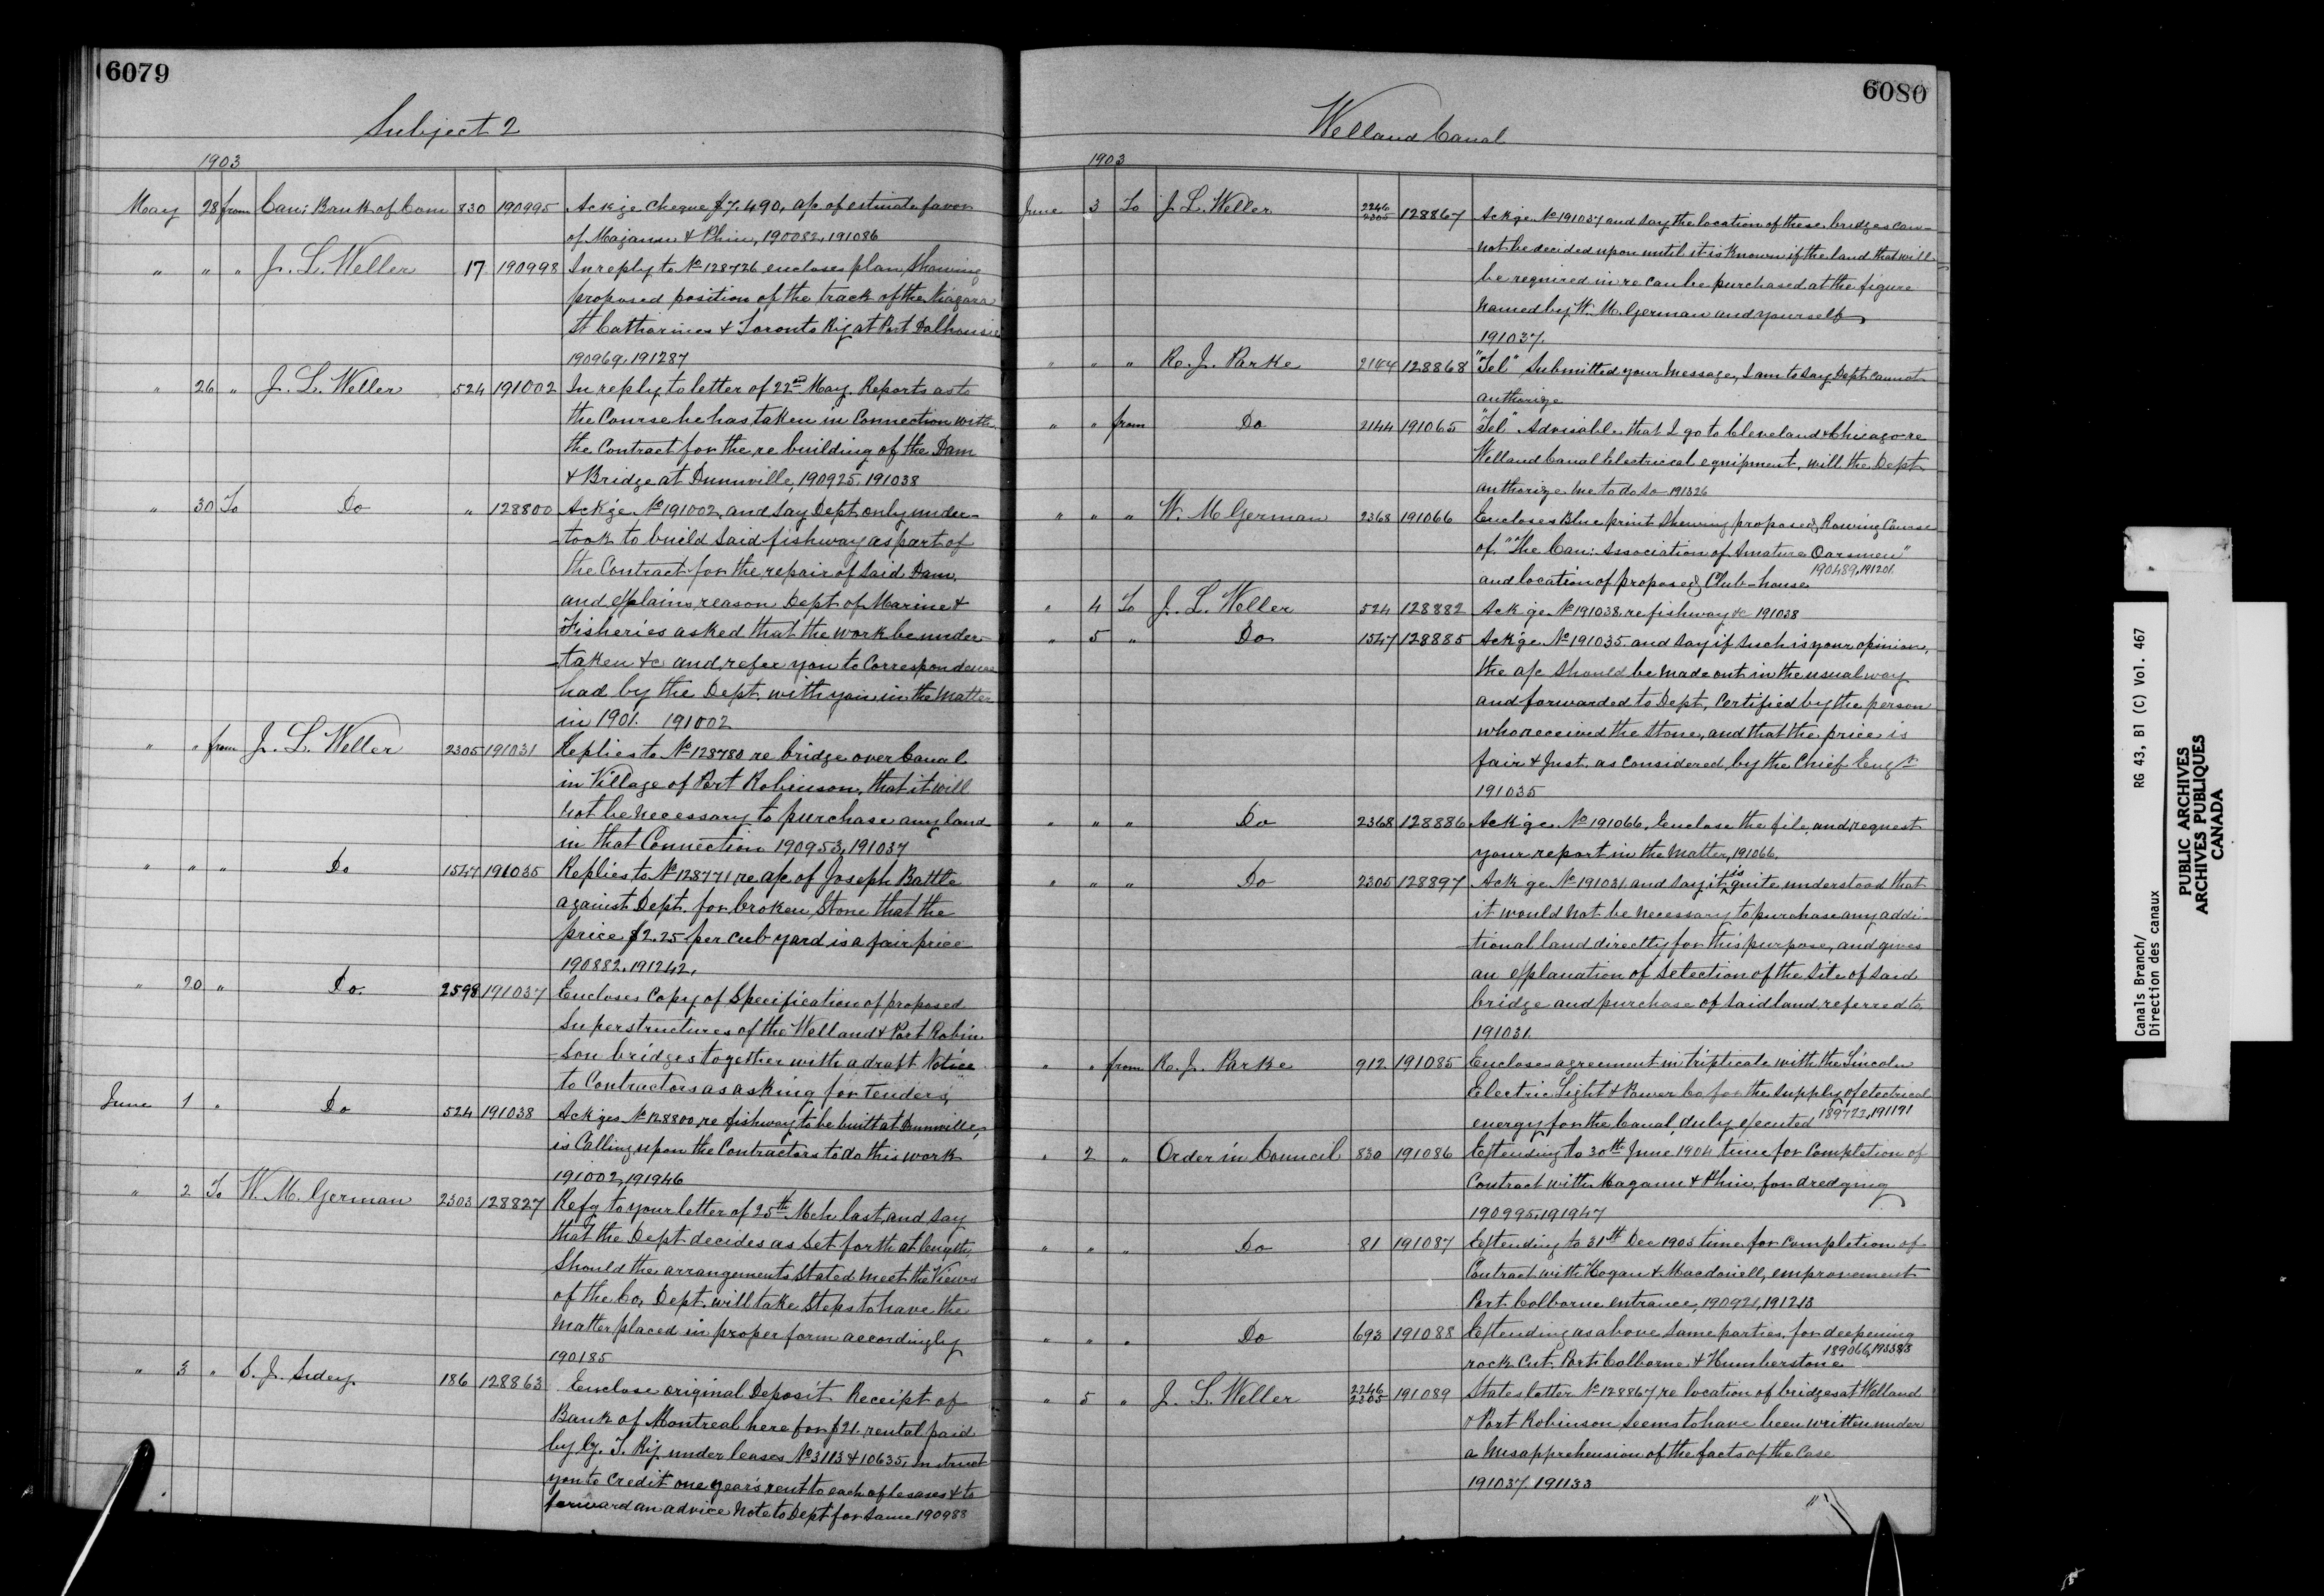 6079
Subject 2
1903
May 28 from Can: Bank of Com 830 190995 Ackge Cheque $7,490, a/c of estimate favor
of Magann & Phin, 190082, 191086
" " " J. L. Weller 17 190998 In reply to No 128726 encloses plan, Showing
proposed position of the track of the Niagara
St Catharines & Toronto Ry at Port Dalhousie
190969, 191287
" 26 " J. L. Weller 524 191002 In reply to letter of 22nd May. Reports as to
the Course he has taken in Connection with
the Contract for the re building of the Dam
& Bridge at Dunnville, 190925, 191038
" 30 To Do " 128800 Ackge No 191002, and say Dept only under-
-took to build said fishway as part of
the Contract for the repair of said Dam,
and explains reason Dept of Marine &
Fisheries asked that the work be under-
-taken &c and refer you to Correspondence
had by the Dept with you in the matter
in 1901. 191002
" " from J. L. Weller 2305 191031 Replies to No 128780 re bridge over Canal
in Village of Port Robinson, that it will
not be necessary to purchase any land
in that Connection 190953, 191037
" " " Do 1547 191035 Replies to No 128771 re a/c of Joseph Battle
against Dept. for broken Stone that the
price $2.25 per cub yard is a fair price
190882, 191242,
" 20 " Do. 2598 191037 Encloses Copy of Specification of proposed
Superstructures of the Welland & Port Robin
-son bridges together with a draft Notice
to Contractors as asking for tenders,
June 1 " Do 524 191038 Ackges No 128800, re fishway to be built at Dunnville,
is Calling upon the Contractors to do this work
191002, 191946
" 2 To W. M. German 2303 128827 Refg to your letter of 25th Mch last, and say
that the Dept decides as set forth at length,
Should the arrangements stated meet the Views
of the Co, Dept. will take Steps to have the
matter placed in proper form accordingly
190185
" 3 " S. J. Sidey 186 128863 Enclose original Deposit Receipt of
Bank of Montreal here for $21. rental paid
by G. T. Ry under leases No 3113 & 10635, Instruct
you to Credit one year's rent to each of leases & to
forward an advice Note to Dept for same 190988
6080
Welland Canal
1903
June 3 To J. L. Weller 2246
2305 128867 Ackge No 191037 and say the location of these bridges can-
-not be decided upon until it is known if the land that will
be required in re can be purchased at the figure
named by W. M. German and yourself,
191037,
" " " R. J. Parke 2144 128868 "Tel" Submitted your message, I am to say Dept cannot
authorize
" " from Do 2144 191065 "Tel" Advisable that I go to Cleveland & Chicago re
Welland Canal Electrical equipment, will the Dept
authorize me to do so 191326
" " " W. M German 2368 191066 Encloses Blue print Shewing proposed Rowing Course
of "The Can: Association of Amature Oarsmen"
and location of proposed Club-house 190489, 191201.
" 4 To J. L. Weller 524 128882 Ackge No 191038 re fishway &c 191038
" 5 " Do 1547 128885 Ackge No 191035. and say if such is your opinion,
the a/c should be made out in the usual way
and forwarded to Dept, Certified by the person
who received the stone, and that the price is
fair & just. as considered by the Chief Engr
191035
" " " Do 2368 128886 Ackge No 191066, Enclose the file, and request
your report in the matter, 191066,
" " " Do 2305 128897 Ackge No 191031 and say it is quite understood that
it would not be necessary to purchase any addi
-tional land directly for this purpose, and gives
an explanation of selection of the site of said
bridge and purchase of said land, referred to,
191031.
" " from R. J. Parke 912 191085 Encloses agreement in triplicate with the Lincoln
Electric Light & Power Co for the supply of electrical
energy for the Canal, duly executed 189722, 191191
" 2 " Order in Council 830 191086 Extending to 30th June 1904 time for Completion of
Contract with Magann & Phin, for dredging
190995, 191947
" " " Do 81 191087 Extending to 31st Dec 1903 time for completion of
Contract with Hogan & Macdonell, improvement
Port Colborne entrance, 190921, 191213
" " " Do 693 191088 Extending as above same parties, for deepening
rock Cut, Port Colborne & Humberstone 189066,
" 5 " J. L. Weller 2246
2305 191089 States letter No 128867 re location of bridges at Welland
& Port Robinson seems to have been written under
a misapprehension of the facts of the case
191037, 191133
Canals Branch/
Direction des canaux
RG 43, B1 (C) Vol. 467
PUBLIC ARCHIVES
ARCHIVES PUBLIQUES
CANADA